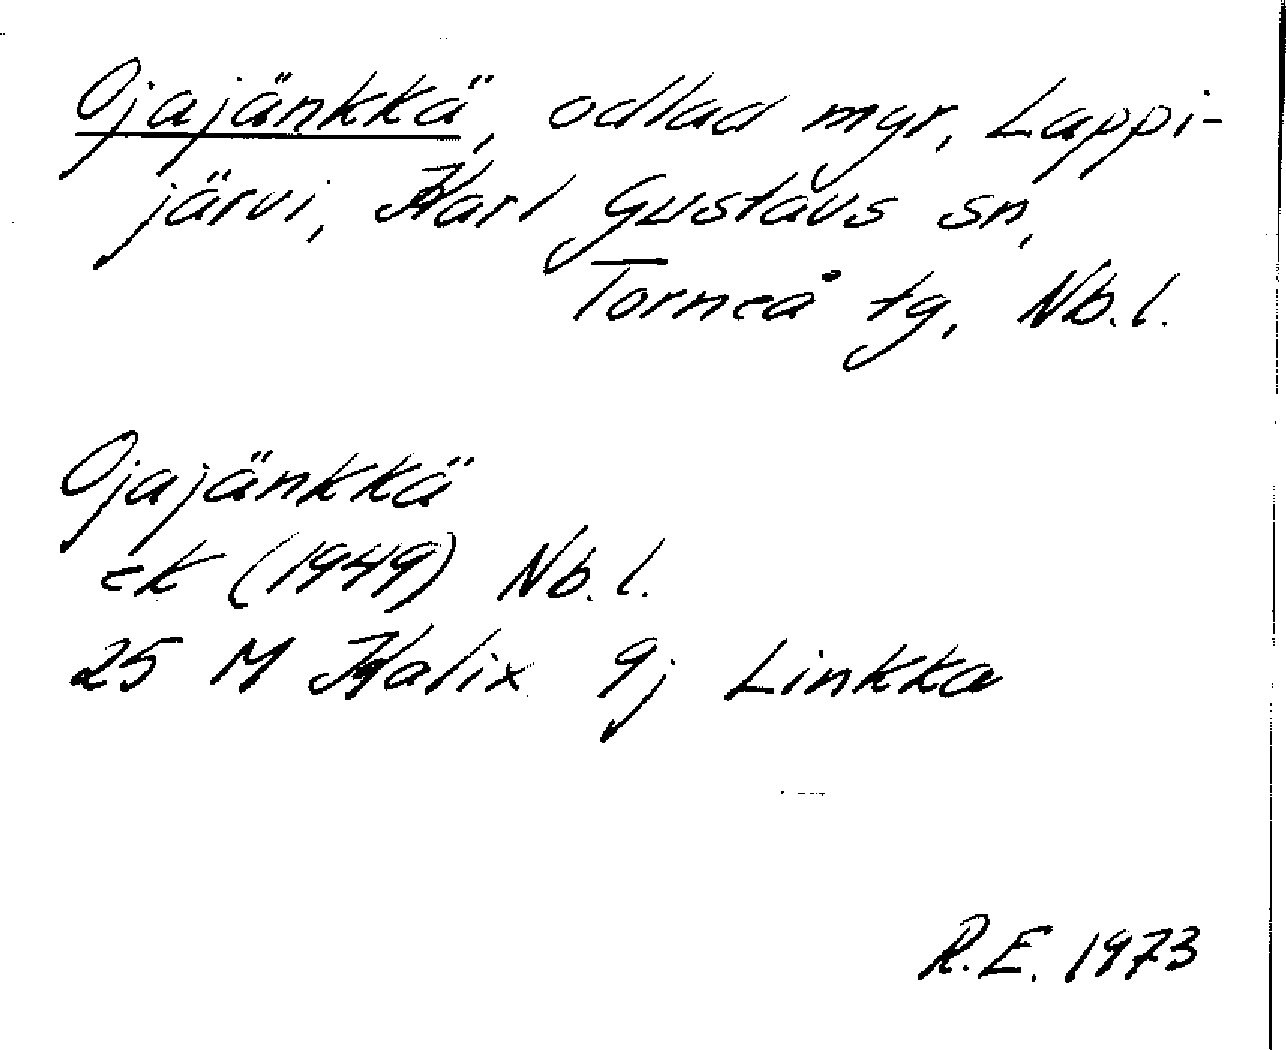 Ojajänkkä, odlad myr, Lappi-
järvi, Karl Gustavs sn,
Torneå tg, Nb.l.
Ojajänkkä
ek (1949) Nb.l.
25 M Kalix 9j Linkka
R.E. 1973